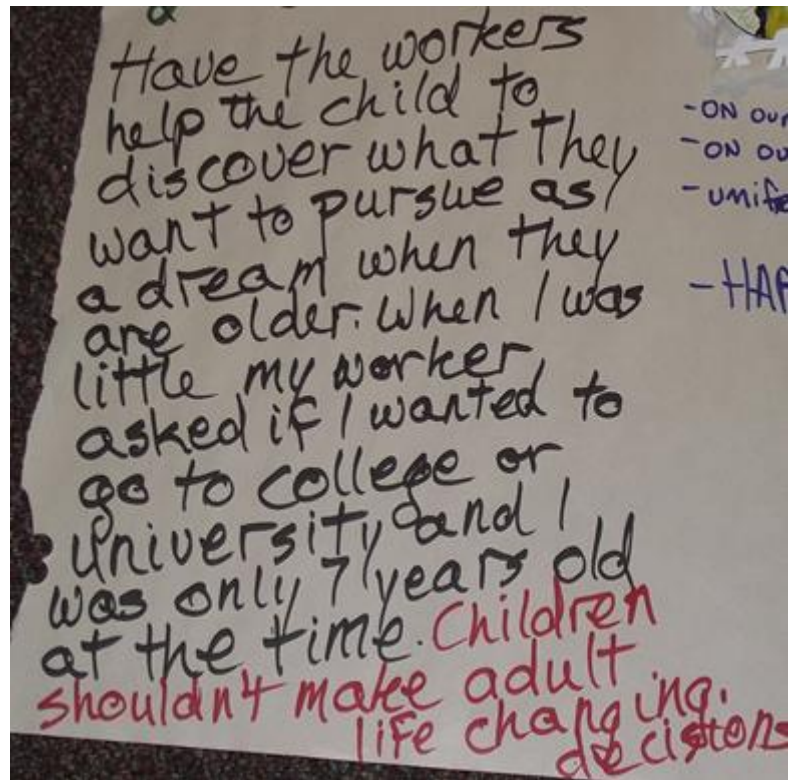 Have the workers
help the child to
discover what they
want to pursue as
a dream when they
are older. When I was
little my worker
asked if I wanted to
go to college or
university and I
was only 7 years old
at the time. Children
shouldn't make adult
life changing.
decistons
-ON OUR
-ON OU
-unife
-HAP